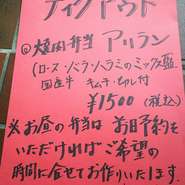 テイクアウト
@焼肉弁当 アリラン
(ロース・バラ・バラミのミックス盛
国産牛 キムチ・切し付
¥1500(税込)
※お昼の弁当はお日予約を
いただければご希望の
時間に合せてお作りいたします。